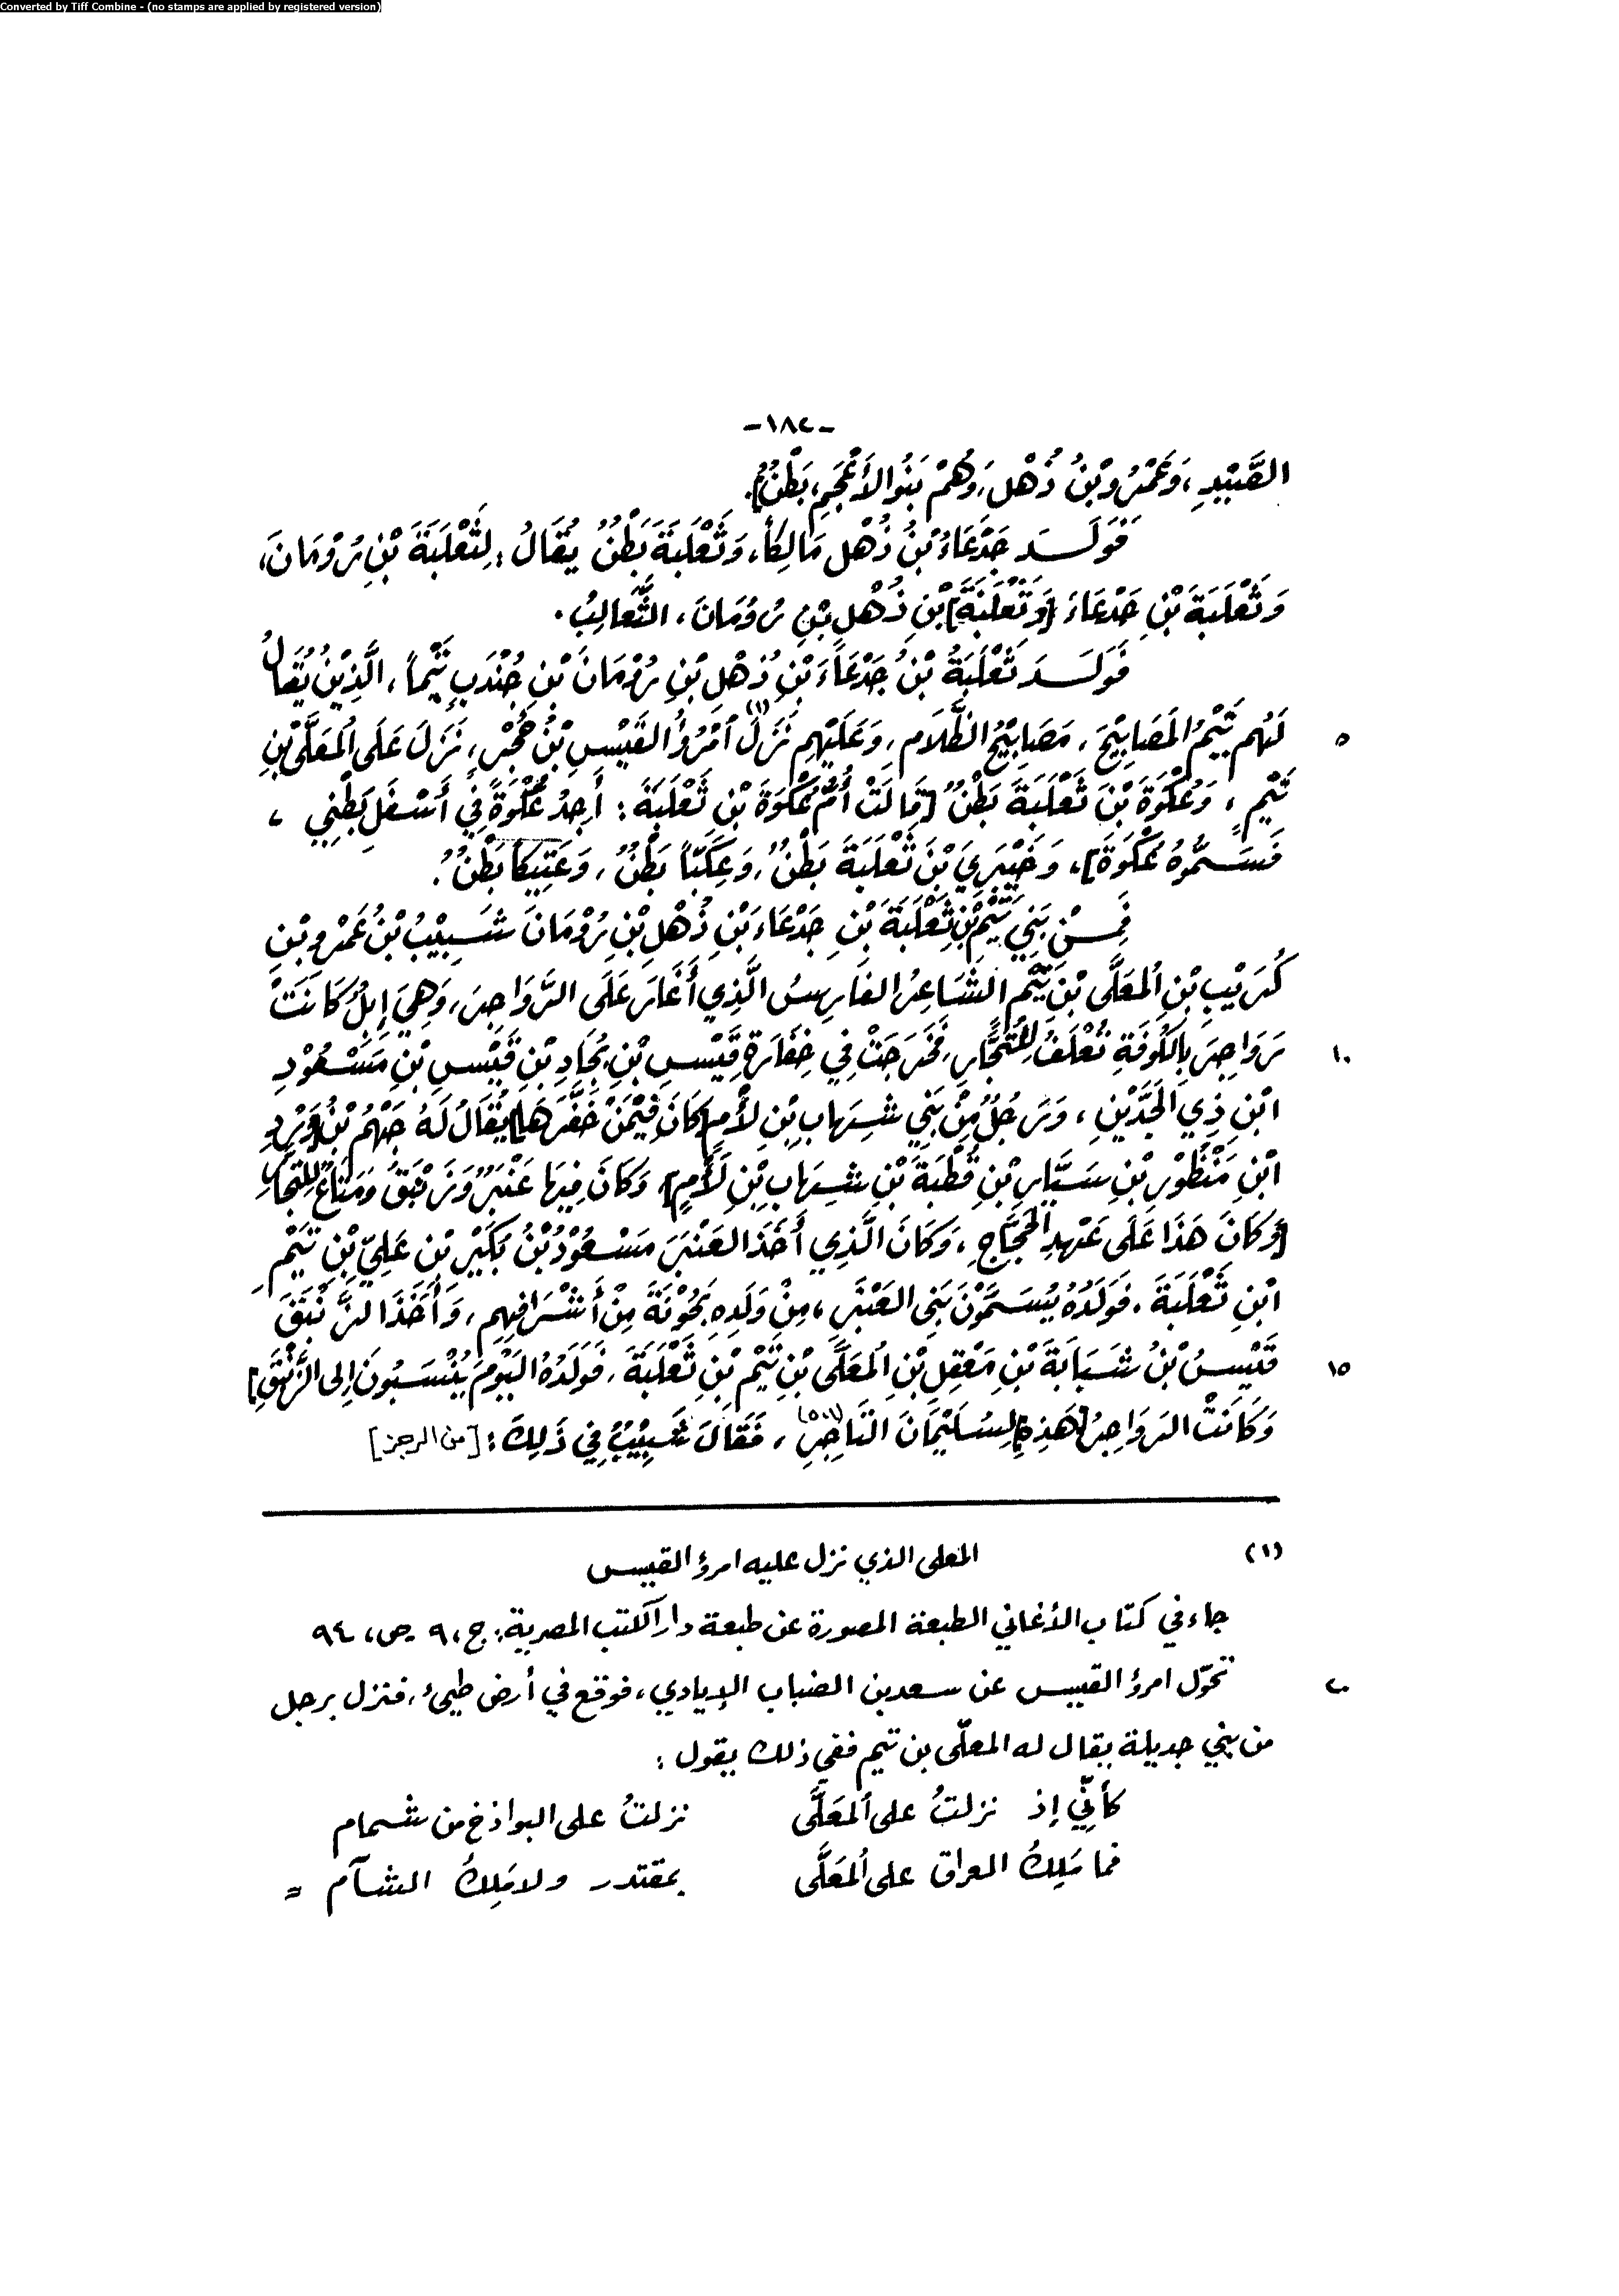 Converted by Tiff Combine - (no stamps are applied by registered version)
-١٨٢-
الصَّبِيْدِ، وَعَمْرُو بْنُ ذُهْلٍ، وَهُمْ بَنُو الأَعْجَمِ، بَطْنٌ].
فَوَلَدَ جَدْعَاءُ بْنُ ذُهْلٍ مَالِكاً، وَثَعْلَبَةَ بَطْنٌ يُقَالُ: لِثَعْلَبَةَ بْنِ رُوْمَانَ،
وَثَعْلَبَةَ بْنِ جَدْعَاءَ [وَثَعْلَبَةَ] بْنِ ذُهْلِ بْنِ رُوْمَانَ، الثَّعَالِبُ.
فَوَلَدَ ثَعْلَبَةُ بْنُ جَدْعَاءَ بْنِ ذُهْلِ بْنِ رُوْمَانَ بْنِ جُنْدَبٍ تَيْماً، الَّذِيْنَ يُقَالُ
٥ لَهُم تَيْمُ المَصَابِيْحَ، مَصَابِيْحُ الظَّلَامِ، وَعَلَيْهِم نَزَلَ (١) امْرُؤُ القَيْسِ بْنُ حُجْرٍ، نَزَلَ عَلَى المُعَلَّى بْنِ
تَيْمٍ، وَعُكْوَةَ بْنَ ثَعْلَبَةَ بَطْنٌ [قَالَتْ أُمُّ عُكْوَةَ بْنِ ثَعْلَبَةَ: أَجِدُ عُكْوَةً فِي أَسْفَلِ بَطْنِي،
فَسَمُّوهُ عُكْوَةَ]، وَخَيْبَرِيَّ بْنَ ثَعْلَبَةَ بَطْنٌ، وَعِكَبّاً بَطْنٌ، وَعَتِيكاً بَطْنٌ.
فَمِنْ بَنِي تَيْمِ بْنِ ثَعْلَبَةَ بْنِ جَدْعَاءَ بْنِ ذُهْلِ بْنِ رُوْمَانَ شَبِيْبُ بْنُ عَمْرِو بْنِ
كُرَيْبِ بْنِ المُعَلَّى بْنِ تَيْمٍ الشَّاعِرُ الفَارِسُ الَّذِي أَغَارَ عَلَى الرَّوَاجِنِ، وَهِيَ إِبِلٌ كَانَتْ
١٠ رَوَاجِنَ بِالكُوفَةِ تُعْلَفُ لِلتُّجَّارِ، فَخَرَجَتْ فِي خِفَارَةِ قَيْسِ بْنِ بِجَادِ بْنِ قَيْسِ بْنِ مَسْعُوْدِ
ابْنِ ذِي الجَدَّيْنِ، وَرَجُلٌ مِنْ بَنِي شِهَابِ بْنِ لَأْمٍ [كَانَ فِيْمَنْ خَفَّرَهَا] يُقَالُ لَهُ جَهْمُ بْنُ
ابْنِ مَنْظُوْرِ بْنِ سَيَّارِ بْنِ قُطْبَةَ بْنِ شِهَابِ بْنِ لَأْمٍ]، وَكَانَ فِيهَا عَنْبَرٌ وَزَنْبَقٌ وَمَتَاعٌ لِلتُّجَّارِ
[وَكَانَ هَذَا عَلَى عَهْدِ الحَجَّاجِ، وَكَانَ الَّذِي أَخَذَ العَنْبَرَ مَسْعُوْدُ بْنُ بُكَيْرِ بْنِ عَلِيِّ بْنِ تَيْمِ
ابْنِ ثَعْلَبَةَ. فَوَلَدُهُ يُسَمَّوْنَ بَنِي العَنْبَرِ، مِنْ وَلَدِهِ بَحْوَنَةُ مِنْ أَشْرَافِهِم، وَأَخَذَ الزَّنْبَقَ
١٥ قَيْسُ بْنُ شَبَابَةَ بْنِ مَعْقِلِ بْنِ المُعَلَّى بْنِ تَيْمِ بْنِ ثَعْلَبَةَ. فَوَلَدُهُ اليَوْمَ يُنْسَبُونَ إِلى الزَّنْبَقِ]
وَكَانَتْ الرَوَاجِنُ [هَذِهِ] لِسُلَيْمَانَ التَّاجِرِ، فَقَالَ شَبِيْبُ فِي ذَلِكَ: [من الرجز]
(١) المعلى الذي نزل عليه امرؤ القيس
جاء في كتاب الأغاني الطبعة المصورة عن طبعة دار الكتب المصرية: ج، ٩ ص، ٩٤
٢٠ تحوّل امرؤ القيس عن سعد بن الضباب الإيادي، فوقع في أرض طيئ، فنزل برجل
من بني جديلة يقال له المعلّى بن تيم ففي ذلك يقول:
كأنّي إذ نزلتُ على المعَلَّى نزلتُ على البواذخ من شمام
فما مَلِكُ العراق على المعَلَّى بمقتدر ولا مَلِكُ الشآم =